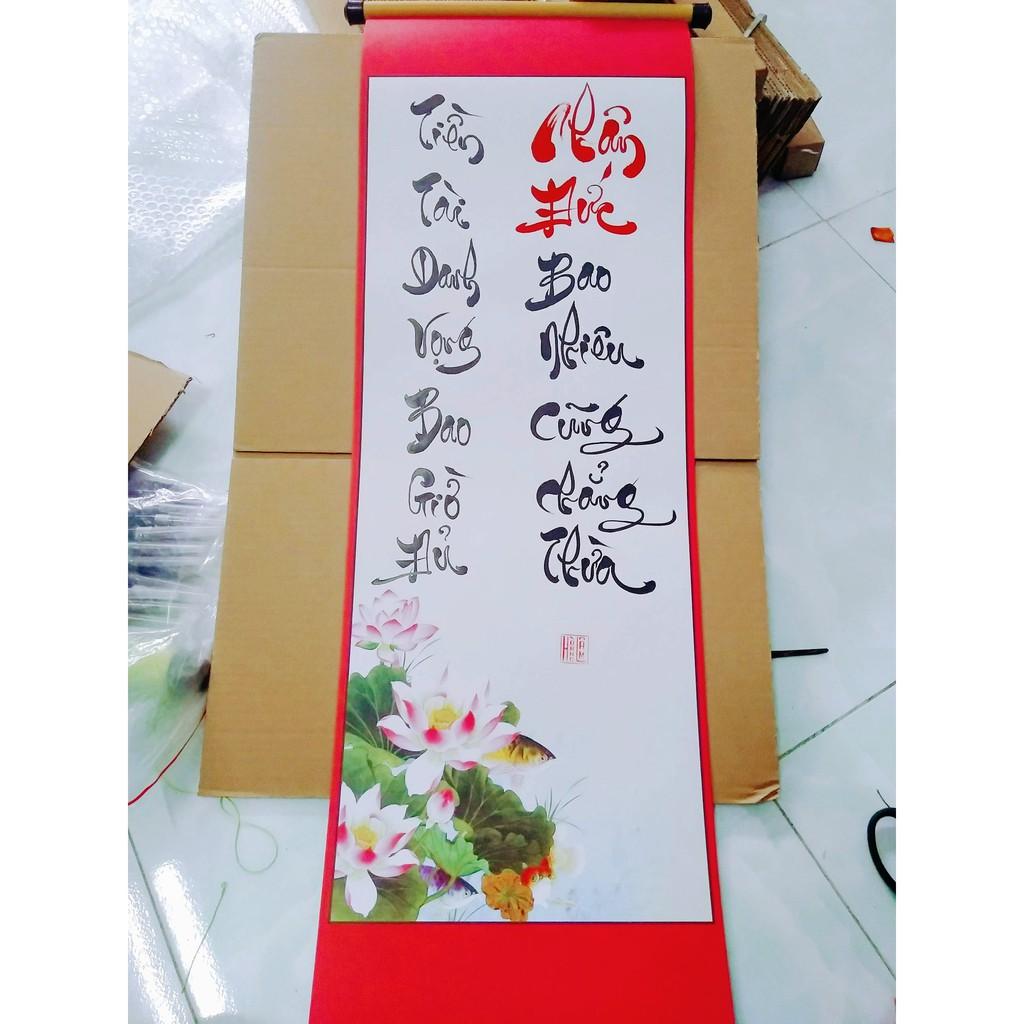 Nhân
Đức
Bao
Nhiêu
Cũng
Chẳng
Thừa
Tiền
Tài
Danh
Vọng
Bao
Giờ
Đủ